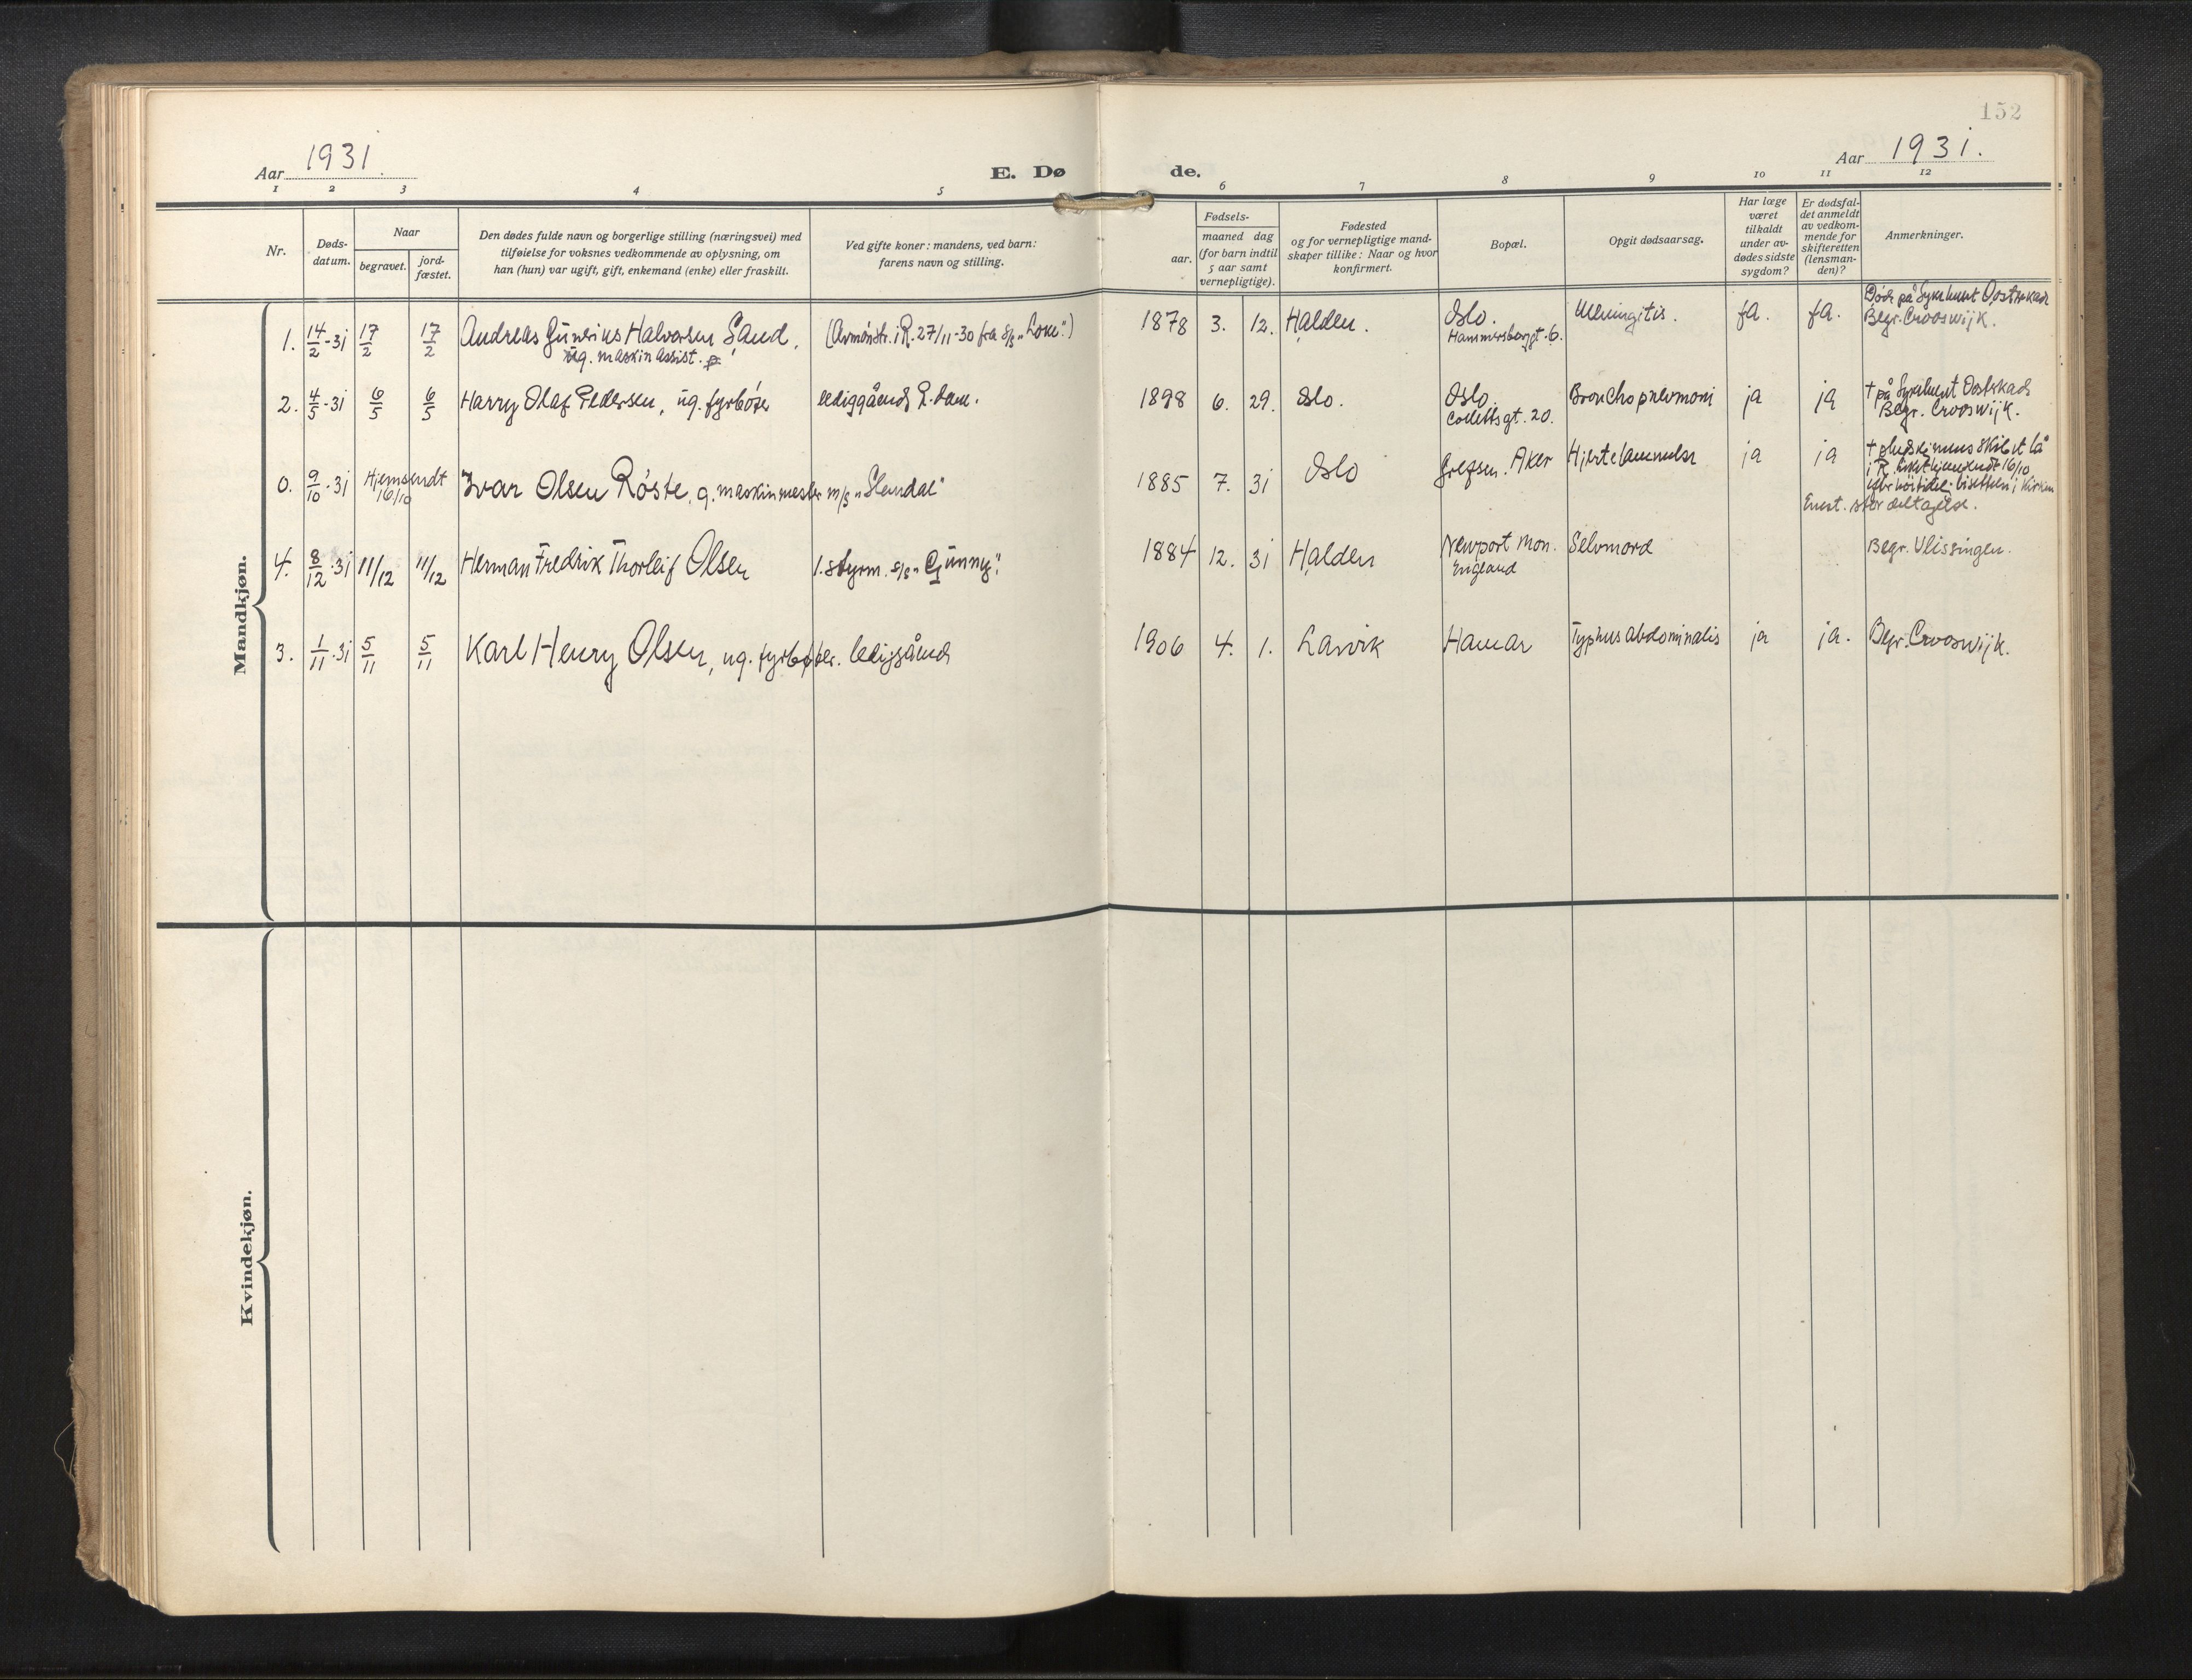 152
Aar 1931.
E. Døde.
Aar 1931.
1 2 3 4 5 6 7 8 9 10 11 12
Nr.
Døds-
datum.
Naar
begravet.
jord-
fæstet.
Den dødes fulde navn og borgerlige stilling (næringsvei) med
tilføielse for voksnes vedkommende av oplysning, om
han (hun) var ugift, gift, enkemand (enke) eller fraskilt.
Ved gifte koner: mandens, ved barn:
farens navn og stilling.
Fødsels-
aar.
maaned dag
(for barn indtil
5 aar samt
vernepligtige).
Fødested
og for vernepligtige mand-
skaper tillike: Naar og hvor
konfirmert.
Bopæl.
Opgit dødsaarsag.
Har læge
været
tilkaldt
under av-
dødes sidste
sygdom?
Er dødsfal-
det anmeldt
av vedkom-
mende for
skifteretten
(lensman-
den)?
Anmerkninger.
Mandkjøn.
1. 14/2-31 17/2 17/2 Andreas Halvorsen Sand, (Avmönstr. i R. 27/11-30 fra s/s) 1878 3. 12. Halden. Oslo. Meningitis. ja. ja. Död på Sykehuset
ug. maskinassist. Hammersborggt. 6. Begr. Crooswijk.
2. 4/5-31 6/5 6/5 Harry Olaf Pedersen, ug. fyrböter lediggående R.dam. 1898 6. 29. Oslo. Oslo. Bronchopnevmoni ja ja † på Sykehuset
Collettsgt. 20. Begr. Crooswijk.
0. 9/10-31 Hjemsendt 16/10 Ivar Olsen Röste, g. maskinmester m/s "Slemdal" 1885 7. 31 Oslo Grefsen. Aker Hjertelammelse ja ja † mens skibet lå
i R. hjemsendt 16/10
i kirken
stor deltagelse.
4. 8/12-31 11/12 11/12 Herman Fredrik Thorleif Olsen 1. styrm. s/s "Gunny". 1884 12. 31 Halden Newport Mon. Selvmord Begr. Vlissingen.
England
3. 1/11-31 5/11 5/11 Karl Henry Olsen, ug. fyrböter. lediggående 1906 4. 1. Larvik Hamar Typhus abdominalis ja ja. Begr. Crooswijk.
Kvindekjøn.